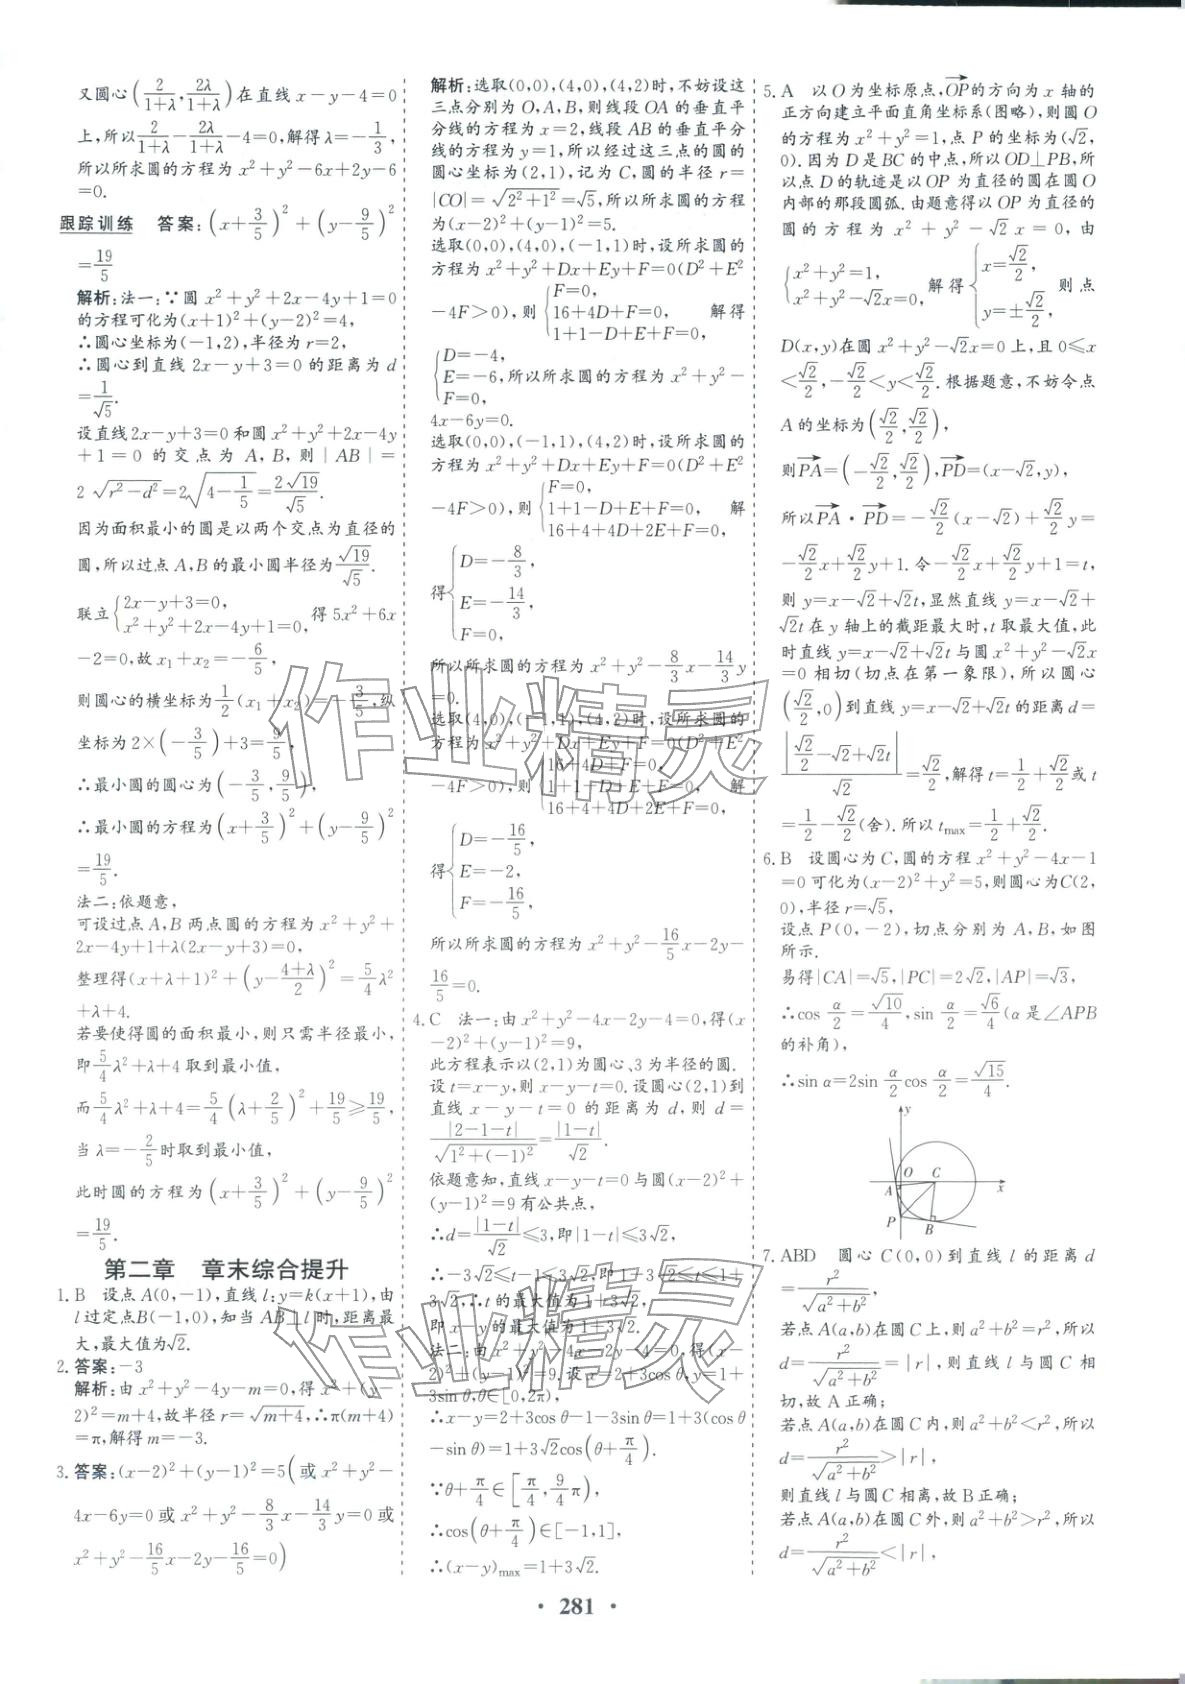 又圆心(2/(1+λ), 2λ/(1+λ))在直线 x－y－4＝0
上,所以2/(1+λ)－2λ/(1+λ)－4＝0,解得λ＝－1/3,
所以所求圆的方程为 x²＋y²－6x＋2y－6
＝0.
跟踪训练 答案:(x＋3/5)²＋(y－9/5)²
＝19/5
解析:法一:∵圆 x²＋y²＋2x－4y＋1＝0
的方程可化为(x＋1)²＋(y－2)²＝4,
∴圆心坐标为(－1,2),半径为 r＝2,
∴圆心到直线 2x－y＋3＝0 的距离为 d
＝1/√5.
设直线2x－y＋3＝0 和圆 x²＋y²＋2x－4y
＋1＝0 的交点为 A,B,则|AB|＝
2√(r²－d²)＝2√(4－1/5)＝2√19/√5.
因为面积最小的圆是以两个交点为直径的
圆,所以过点 A,B的最小圆半径为√19/√5.
联立{2x－y＋3＝0, x²＋y²＋2x－4y＋1＝0, 得 5x²＋6x
－2＝0,故 x₁＋x₂＝－6/5,
则圆心的横坐标为1/2(x₁＋x₂)＝－3/5,纵
坐标为 2×(－3/5)＋3＝9/5,
∴最小圆的圆心为(－3/5,9/5),
∴最小圆的方程为(x＋3/5)²＋(y－9/5)²
＝19/5.
法二:依题意,
可设过点 A,B 两点圆的方程为 x²＋y²＋
2x－4y＋1＋λ(2x－y＋3)＝0,
整理得(x＋λ＋1)²＋(y－(4＋λ)/2)²＝5/4λ²
＋λ＋4.
若要使得圆的面积最小,则只需半径最小,
即5/4λ²＋λ＋4取到最小值,
而5/4λ²＋λ＋4＝5/4(λ＋2/5)²＋19/5≥19/5,
当λ＝－2/5时取到最小值,
此时圆的方程为(x＋3/5)²＋(y－9/5)²＝
19/5.
第二章 章末综合提升
1. B 设点 A(0,－1),直线 l:y＝k(x＋1),由
l过定点B(－1,0),知当 AB⊥l时,距离最
大,最大值为√2.
2. 答案:－3
解析:由 x²＋y²－4y－m＝0,得 x²＋(y－
2)²＝m＋4,故半径 r＝√(m＋4),∴π(m＋4)
＝π,解得 m＝－3.
3. 答案:(x－2)²＋(y－1)²＝5(或 x²＋y²－
4x－6y＝0 或 x²＋y²－8/3x－14/3y＝0 或
x²＋y²－16/5x－2y－16/5＝0)
解析:选取(0,0),(4,0),(4,2)时,不妨设这
三点分别为 O,A,B,则线段 OA 的垂直平
分线的方程为 x＝2,线段 AB 的垂直平分
线的方程为 y＝1,所以经过这三点的圆的
圆心坐标为(2,1),记为 C,圆的半径 r＝
|CO|＝√(2²＋1²)＝√5,所以所求圆的方程
为(x－2)²＋(y－1)²＝5.
选取(0,0),(4,0),(－1,1)时,设所求圆的
方程为 x²＋y²＋Dx＋Ey＋F＝0(D²＋E²
－4F＞0),则{F＝0, 16＋4D＋F＝0, 1＋1－D＋E＋F＝0, 解得
{D＝－4, E＝－6, F＝0, 所以所求圆的方程为 x²＋y²－
4x－6y＝0.
选取(0,0),(－1,1),(4,2)时,设所求圆的
方程为 x²＋y²＋Dx＋Ey＋F＝0(D²＋E²
－4F＞0),则{F＝0, 1＋1－D＋E＋F＝0, 16＋4＋4D＋2E＋F＝0, 解
得{D＝－8/3, E＝－14/3, F＝0,
所以所求圆的方程为 x²＋y²－8/3x－14/3y
＝0.
选取(4,0),(－1,1),(4,2)时,设所求圆的
方程为 x²＋y²＋Dx＋Ey＋F＝0(D²＋E²
－4F＞0),则{16＋4D＋F＝0, 1＋1－D＋E＋F＝0, 16＋4＋4D＋2E＋F＝0, 解
得{D＝－16/5, E＝－2, F＝－16/5,
所以所求圆的方程为 x²＋y²－16/5x－2y－
16/5＝0.
4. C 法一:由 x²＋y²－4x－2y－4＝0,得(x
－2)²＋(y－1)²＝9,
此方程表示以(2,1)为圆心、3为半径的圆.
设 t＝x－y,则 x－y－t＝0. 设圆心(2,1)到
直线 x－y－t＝0 的距离为 d,则 d＝
|2－1－t|/√(1²＋(－1)²)＝|1－t|/√2.
依题意知,直线 x－y－t＝0 与圆(x－2)²＋
(y－1)²＝9 有公共点,
∴d＝|1－t|/√2≤3,即|1－t|≤3√2,
∴－3√2≤t－1≤3√2,即 1－3√2≤t≤1＋
3√2,∴t 的最大值为 1＋3√2,
即 x－y 的最大值为1＋3√2.
法二:由 x²＋y²－4x－2y－4＝0,得(x－
2)²＋(y－1)²＝9. 设 x＝2＋3cos θ,y＝1＋
3sin θ,θ∈[0,2π),
∴x－y＝2＋3cos θ－1－3sin θ＝1＋3(cos θ
－sin θ)＝1＋3√2cos(θ＋π/4).
∵θ＋π/4∈[π/4,9/4π),
∴cos(θ＋π/4)∈[－1,1],
∴(x－y)max＝1＋3√2.
5. A 以 O 为坐标原点,OP→的方向为 x 轴的
正方向建立平面直角坐标系(图略),则圆 O
的方程为 x²＋y²＝1,点 P 的坐标为(√2,
0). 因为 D 是 BC 的中点,所以 OD⊥PB,所
以点 D 的轨迹是以 OP 为直径的圆在圆 O
内部的那段圆弧. 由题意得以 OP 为直径的
圆的方程为 x²＋y²－√2x＝0,由
{x²＋y²＝1, x²＋y²－√2x＝0, 解得{x＝√2/2, y＝±√2/2, 则点
D(x,y)在圆 x²＋y²－√2x＝0 上,且 0≤x
＜√2/2,－√2/2＜y＜√2/2. 根据题意,不妨令点
A 的坐标为(√2/2,√2/2),
则PA→＝(－√2/2,√2/2),PD→＝(x－√2,y),
所以PA→·PD→＝－√2/2(x－√2)＋√2/2y＝
－√2/2x＋√2/2y＋1. 令－√2/2x＋√2/2y＋1＝t,
则 y＝x－√2＋√2t,显然直线 y＝x－√2＋
√2t 在 y 轴上的截距最大时,t 取最大值,此
时直线 y＝x－√2＋√2t 与圆 x²＋y²－√2x
＝0 相切(切点在第一象限),所以圆心
(√2/2,0)到直线 y＝x－√2＋√2t 的距离 d＝
|√2/2－√2＋√2t|/√2＝√2/2,解得 t＝1/2＋√2/2或 t
＝1/2－√2/2(舍). 所以 tmax＝1/2＋√2/2.
6. B 设圆心为 C,圆的方程 x²＋y²－4x－1
＝0 可化为(x－2)²＋y²＝5,则圆心为C(2,
0),半径 r＝√5,
设点 P(0,－2),切点分别为 A,B,如图
所示.
易得|CA|＝√5,|PC|＝2√2,|AP|＝√3,
∴cos α/2＝√10/4,sin α/2＝√6/4(α 是∠APB
的补角),
∴sin α＝2sin α/2 cos α/2＝√15/4.
y
O
C
A
x
P
B
7. ABD 圆心 C(0,0)到直线 l 的距离 d＝
r²/√(a²＋b²),
若点 A(a,b)在圆 C 上,则 a²＋b²＝r²,所以
d＝r²/√(a²＋b²)＝|r|,则直线 l 与圆 C 相
切,故 A 正确;
若点 A(a,b)在圆 C 内,则 a²＋b²＜r²,所以
d＝r²/√(a²＋b²)＞|r|,
则直线 l 与圆 C 相离,故 B 正确;
若点 A(a,b)在圆 C 外,则 a²＋b²＞r²,所以
d＝r²/√(a²＋b²)＜|r|,
· 281 ·
作业精灵
作业精灵